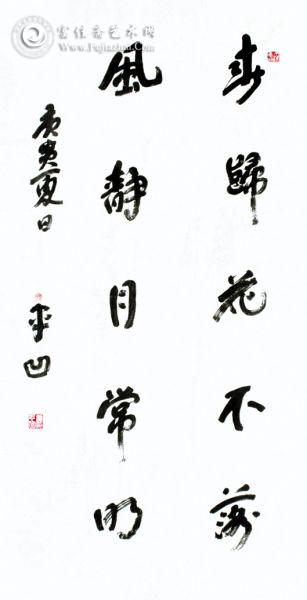 富佳斋艺术网
www.Fujiazhai.com
春歸花不落
風靜月常明
庚寅夏日
平凹